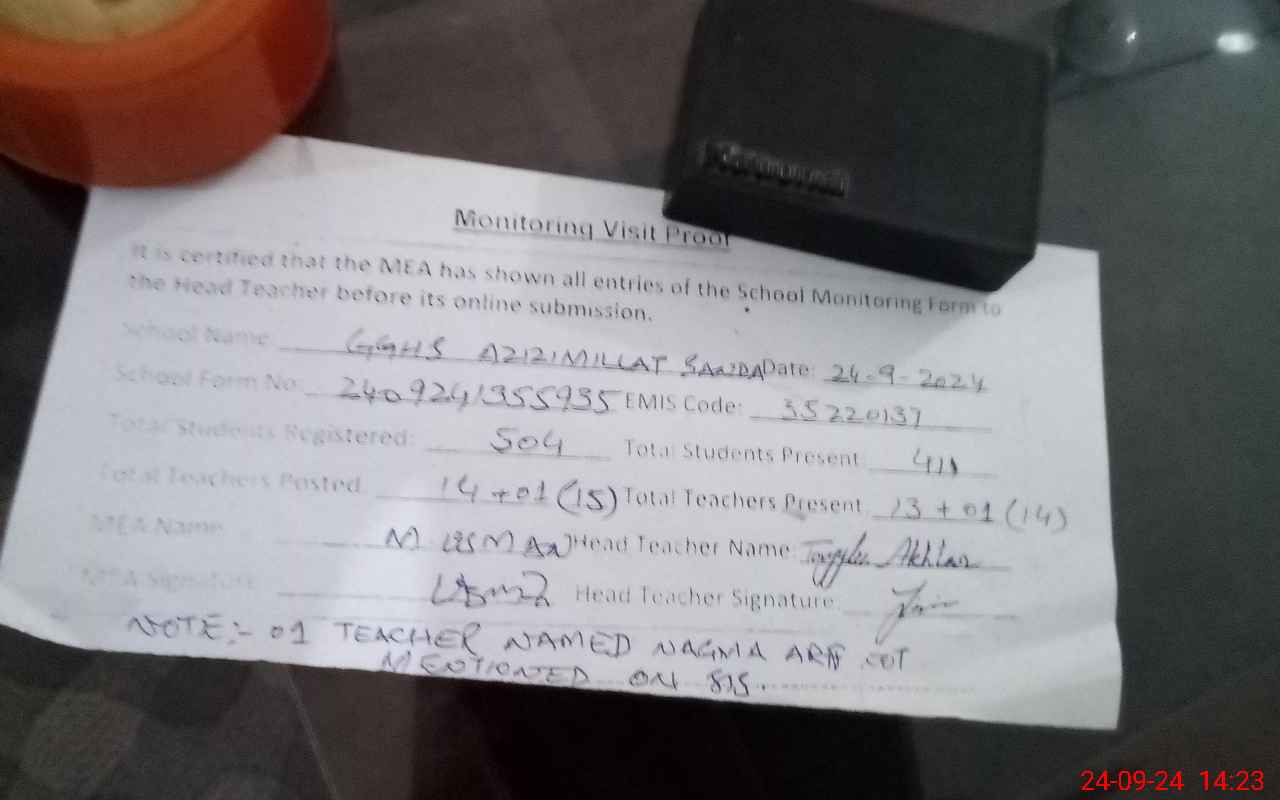 Monitoring Visit Proof
It is certified that the MEA has shown all entries of the School Monitoring Form to
the Head Teacher before its online submission.
School Name: GGHS AZIZIMILLAT SANDA Date: 24-9-2024
School Form No: 2409241355935 EMIS Code: 35220137
Total Students Registered: 504 Total Students Present: 411
Total Teachers Posted: 14+01 (15) Total Teachers Present: 13+01 (14)
MEA Name M USMAN Head Teacher Name: Akhtar
MEA Signature Head Teacher Signature:
NOTE:- 01 TEACHER NAMED NAGMA ARE NOT
MENTIONED ON SIS.
24-09-24 14:23